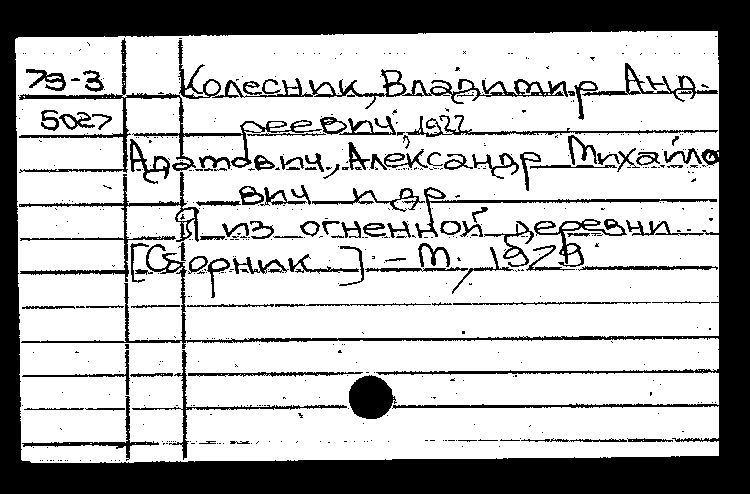 79-3 Колесник, Владимир Анд-
5027 реевич, 1922
Адамович, Александр Михайло
вич и др.
Я из огненной деревни...
[Сборник]. – М., 1979